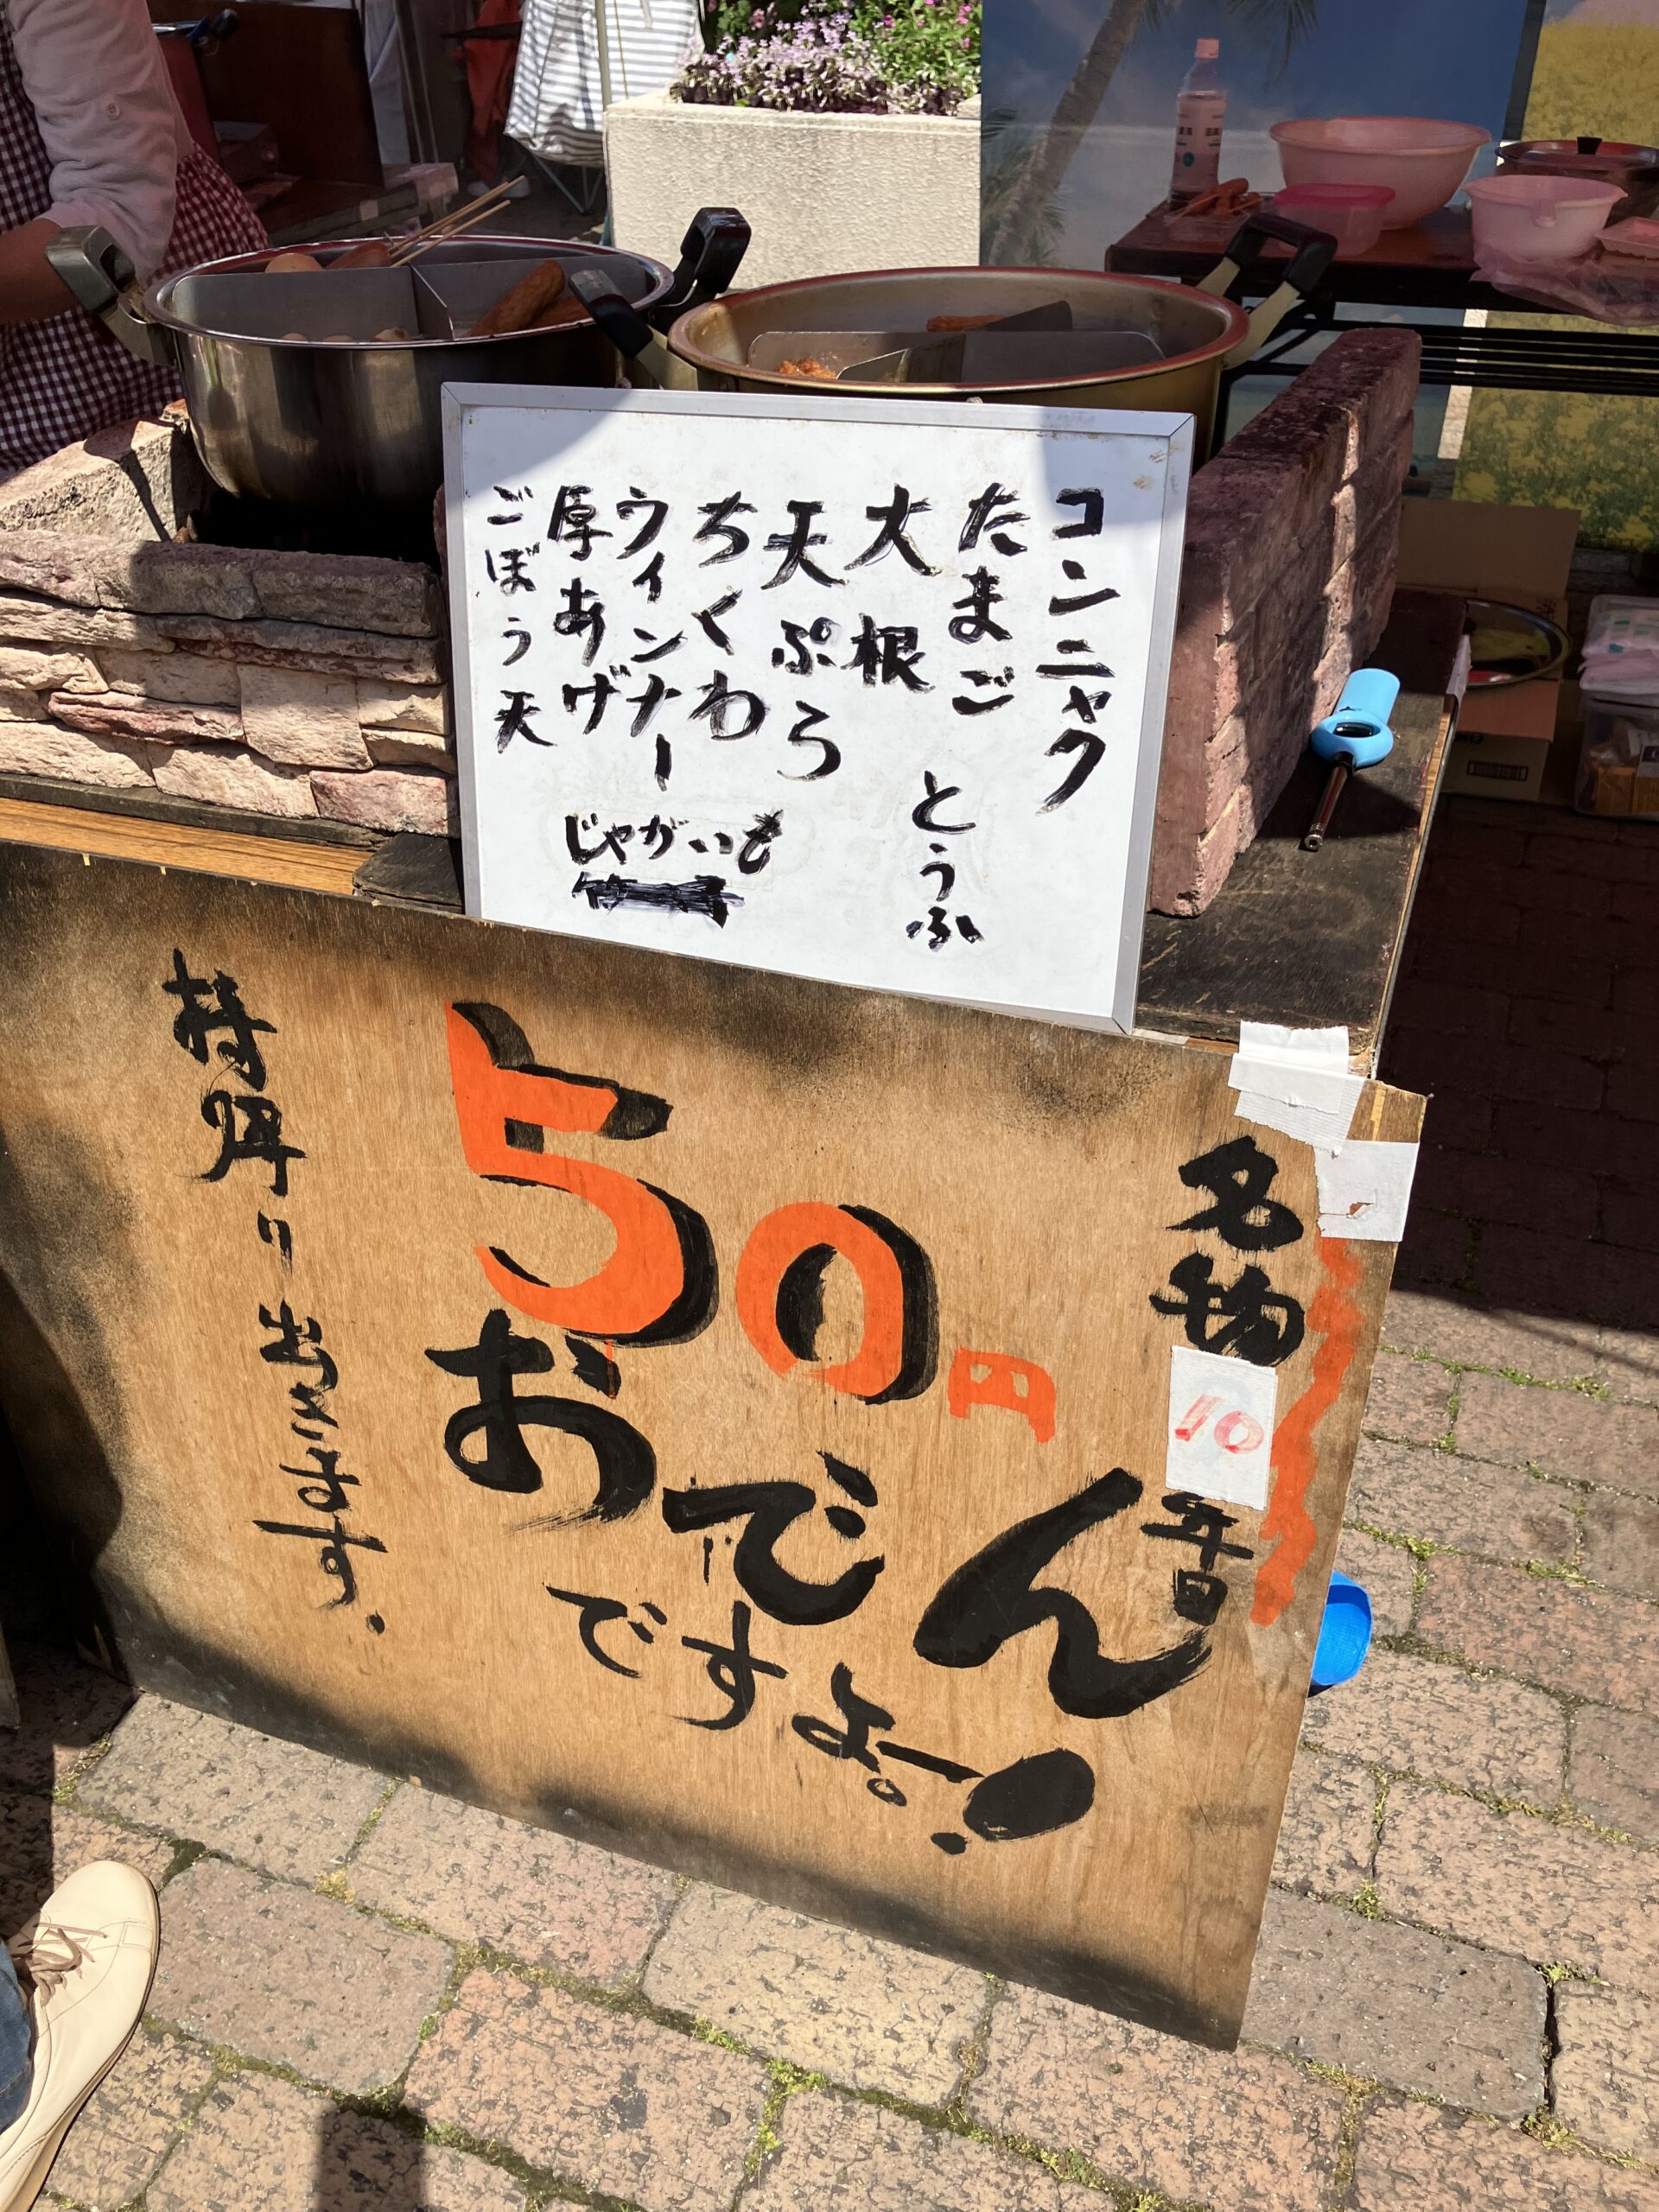 コンニャク
たまご
とうふ
大根
天ぷら
ちくわ
ウィンナー
厚あげ
ごぼう天
じゃがいも
名物
10
年目
50円
おでん
ですよー。!
持帰り出きます.